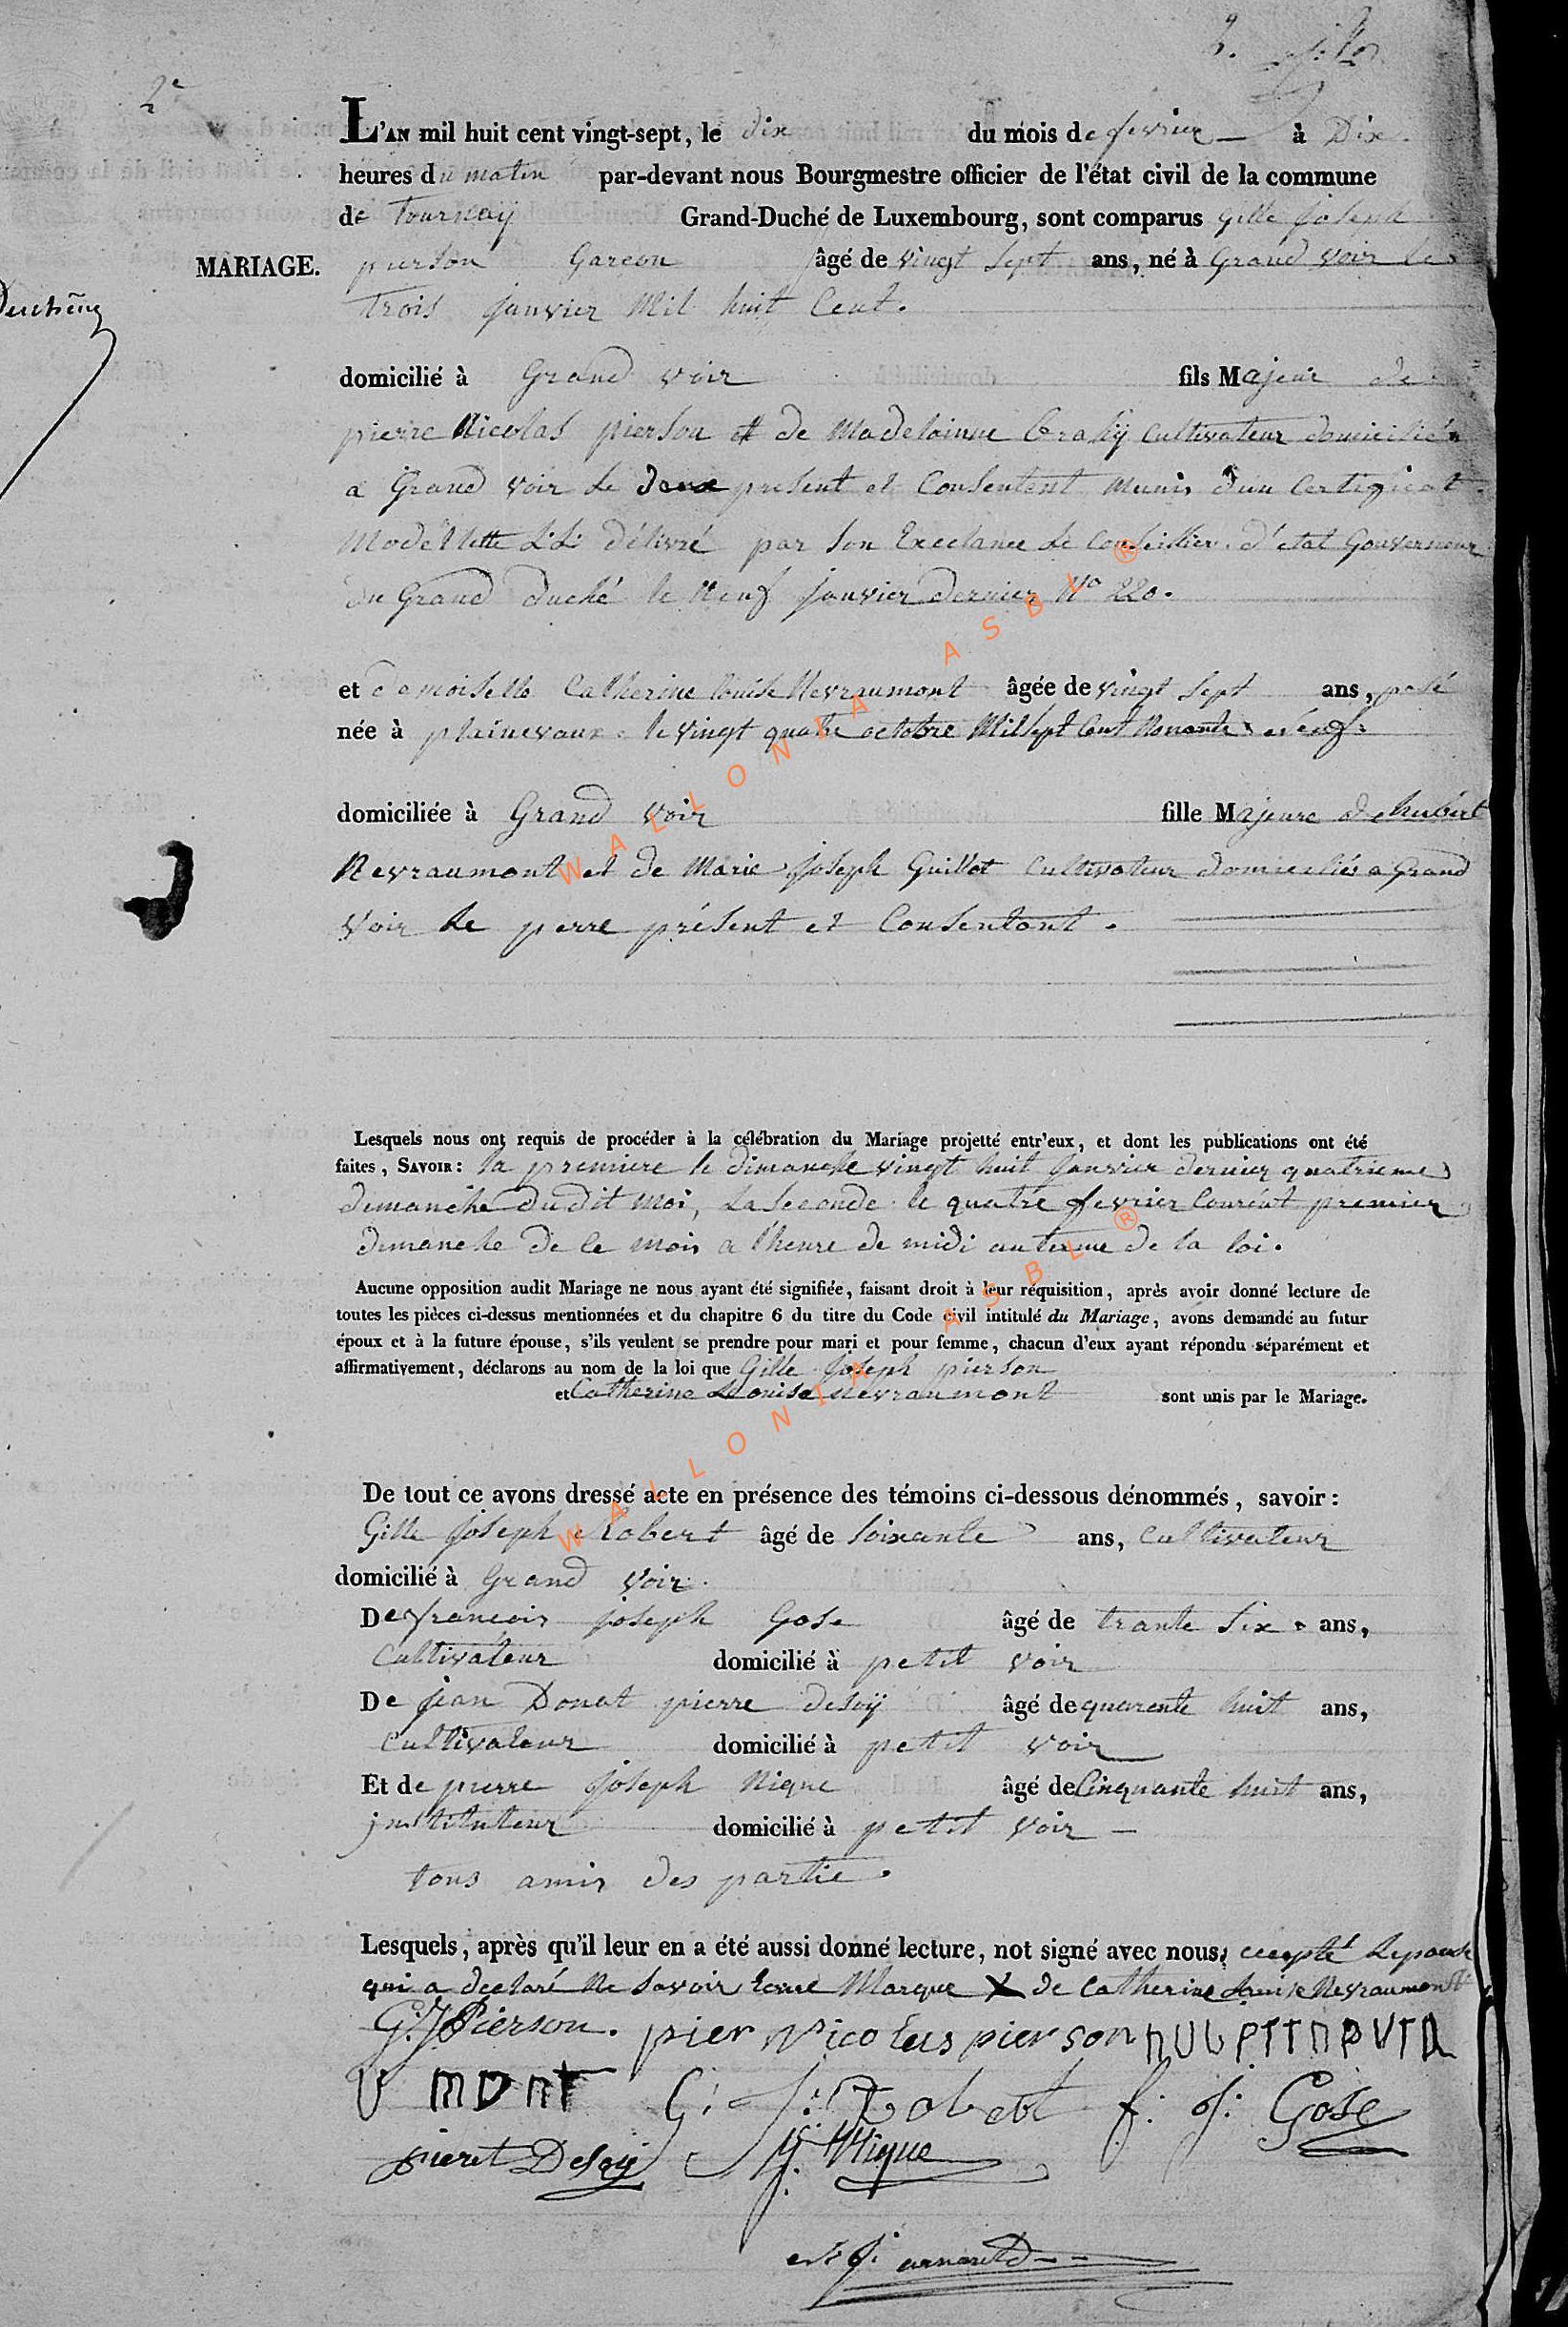 2e
L'AN mil huit cent vingt-sept, le dix du mois de fevrier à Dix
heures du matin par-devant nous Bourgmestre officier de l'état civil de la commune
de Tournaÿ Grand-Duché de Luxembourg, sont comparus Gille Joseph
MARIAGE. pierson Garcon âgé de vingt sept ans, né à Grand voir le
trois janvier Mil huit Cent.
domicilié à Grand voir fils Majeur de
pierre Nicolas pierson et de Madelainne Crasÿ Cultivateur domiciliés
a Grand voir Le present et Consentent Munis d'un Certificat
Modéllette L.L. délivré par Son Execlance Le Conseillier d'etat Gouverneur
du Grand duché le Neuf janvier dernier No 220.
et demoiselle Catherine Louise Nevraumont âgée de vingt Sept ans,
née à plainevaux le vingt quatre octobre Mil Sept Cent Nonante Neuf.
domiciliée à Grand voir fille Majeure de hubert
Nevraumont et de Marie Joseph Guillot Cultivateur domiciliés a Grand
voir Le perre présent et Consentant.
Lesquels nous ont requis de procéder à la célébration du Mariage projetté entr'eux, et dont les publications ont été
faites, SAVOIR : la premiere le dimanche vingt huit janvier dernier quatrieme
dimanche dudit moi, La Seconde le quatre fevrier Courént premier
dimanche de ce mois a l'heure de midi au terme de la loi.
Aucune opposition audit Mariage ne nous ayant été signifiée, faisant droit à leur réquisition, après avoir donné lecture de
toutes les pièces ci-dessus mentionnées et du chapitre 6 du titre du Code civil intitulé du Mariage, avons demandé au futur
époux et à la future épouse, s'ils veulent se prendre pour mari et pour femme, chacun d'eux ayant répondu séparément et
affirmativement, déclarons au nom de la loi que Gille Joseph pierson
et Catherine Louise Nevraumont sont unis par le Mariage.
De tout ce avons dressé acte en présence des témoins ci-dessous dénommés, savoir :
Gille Joseph Robert âgé de Soixante ans, Cultivateur
domicilié à Grand voir.
De francois joseph Gose âgé de trante Six ans,
Cultivateur domicilié à petit voir
De jean Donat pierre desoÿ âgé de quarente huit ans,
Cultivateur domicilié à petit voir
Et de pierre Joseph Nique âgé de Cinquante huit ans,
jnstituteur domicilié à petit voir
tous amis des partie.
Lesquels, après qu'il leur en a été aussi donné lecture, not signé avec nous, Lepouse
qui a declaré Ne Savoir Ecrire Marque X de Catherine Louise Nevraumont
G: J Pierson. pier Nicolas pierson
V MONT G: J: Robert f: J: Gose
pieret Desoÿ p: J: Nique
J: arnould
WALLONIA ASBL ®
WALLONIA ASBL ®